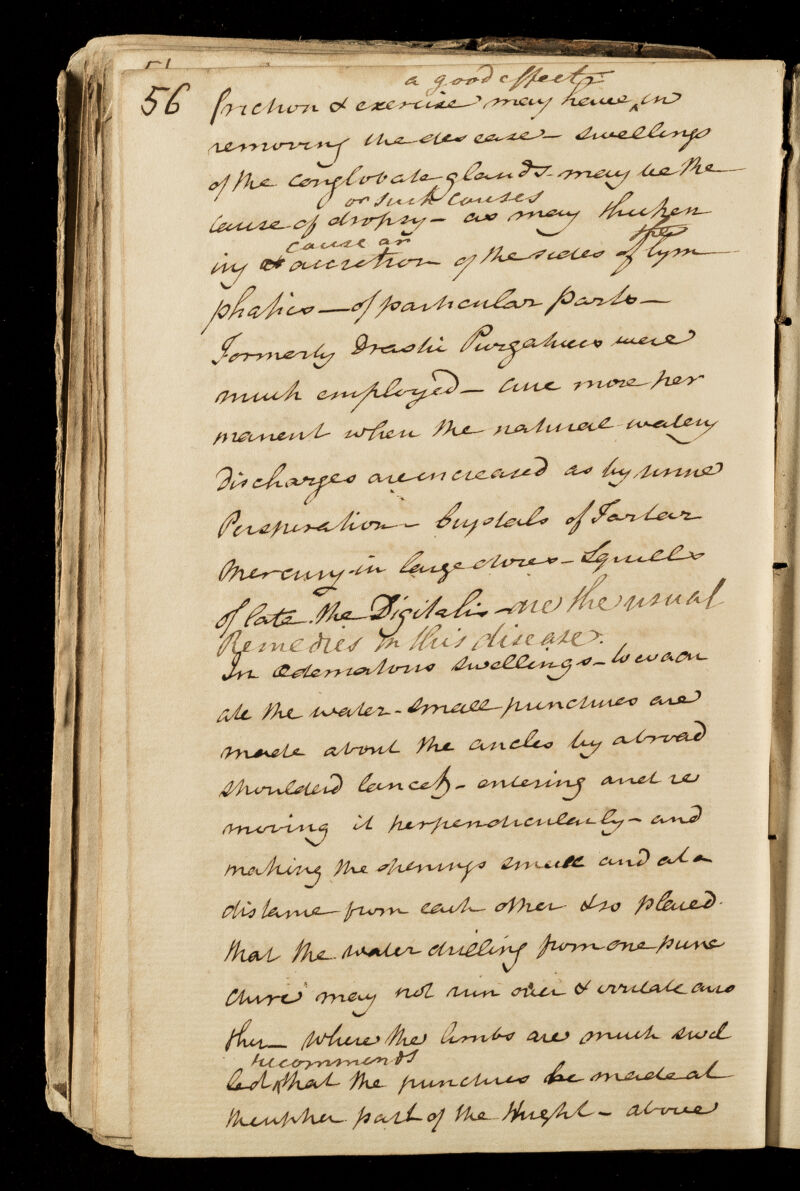 56
a good effect
friction & exercise may have ^ in
removing the desease - swellings
of the conglobate glands - may be the
or such causes
cause of dropsy - as may thicken
cause an
ing accretion of the sides of the lym
phatics - of particular parts -
Formerly Drastic Purgatives were
much employed - cure more per
manent when the natural watery
Discharges are increased as by urine
Perspiration - Crystals of Tartar
Mercury in large doses - Squills
of late the Digitalis - are the usual
Remedies in this disease.
In Œdematous swellings - to evacu
ate the water - small punctures are
made about the ancles by abroad
shoulderd lancet - entering and re
moving it perpendicularly - and
making the openings small and at a
distance from each other & so placed
that the water drilling from one punc
cture may not run over & irritate ano
ther - where the limbs are much swel
recommends
led ^ that the punctures be made at
the upper part of the thight - above